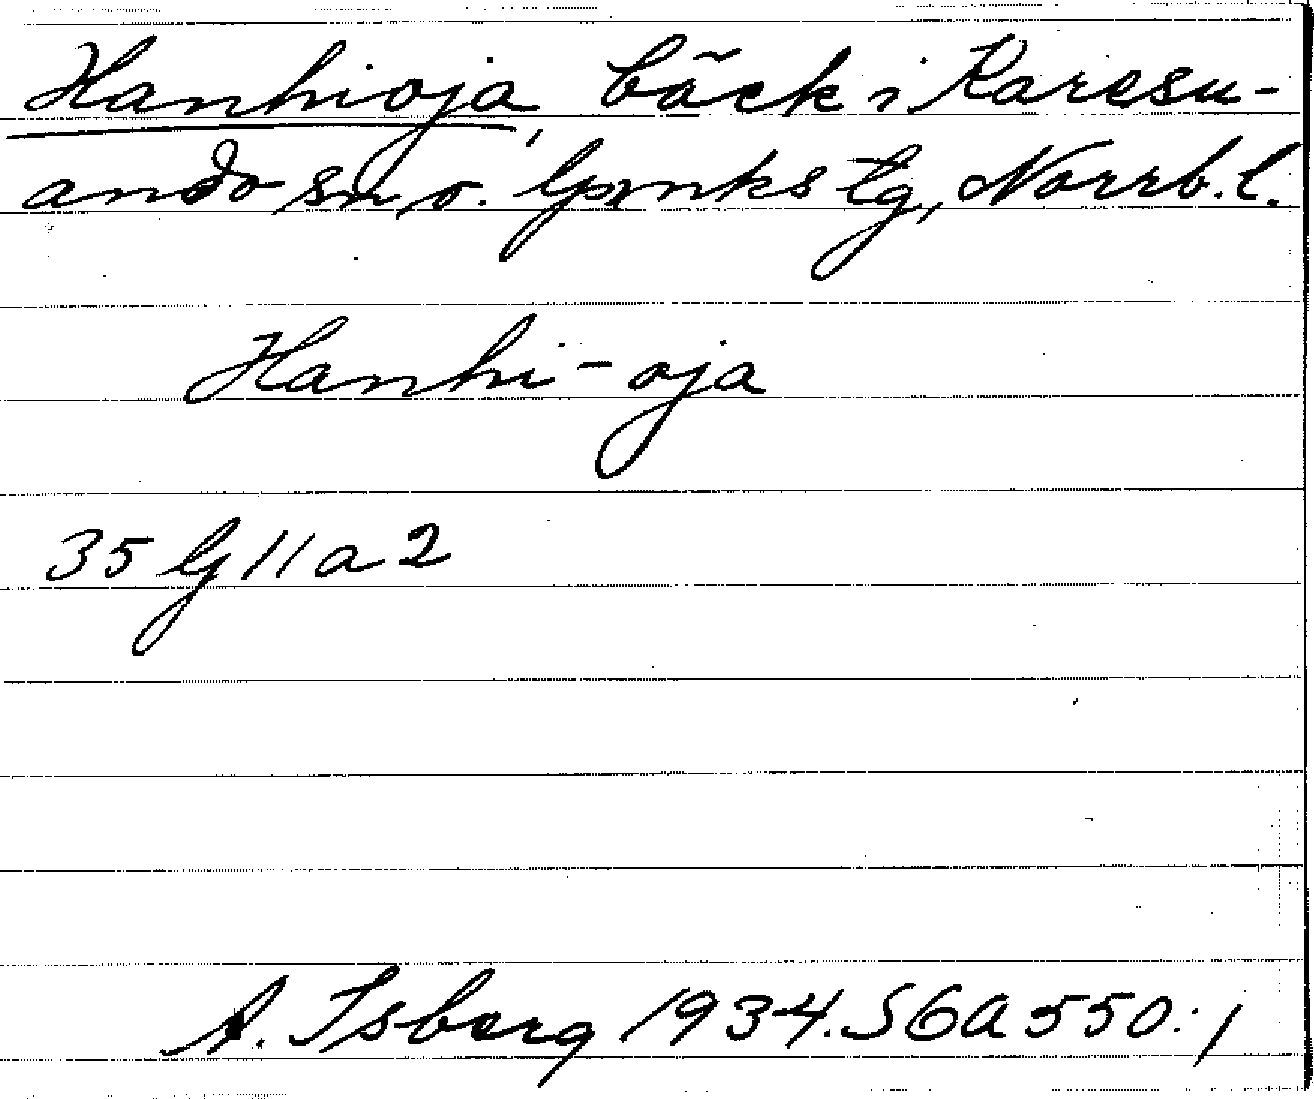 Hanhioja, bäck i Karesu-
ando sn o. lpmks tg, Norrb. l.
Hanhi-oja
35 lg 11 a 2
A. Isberg 1934. SGA 550:1